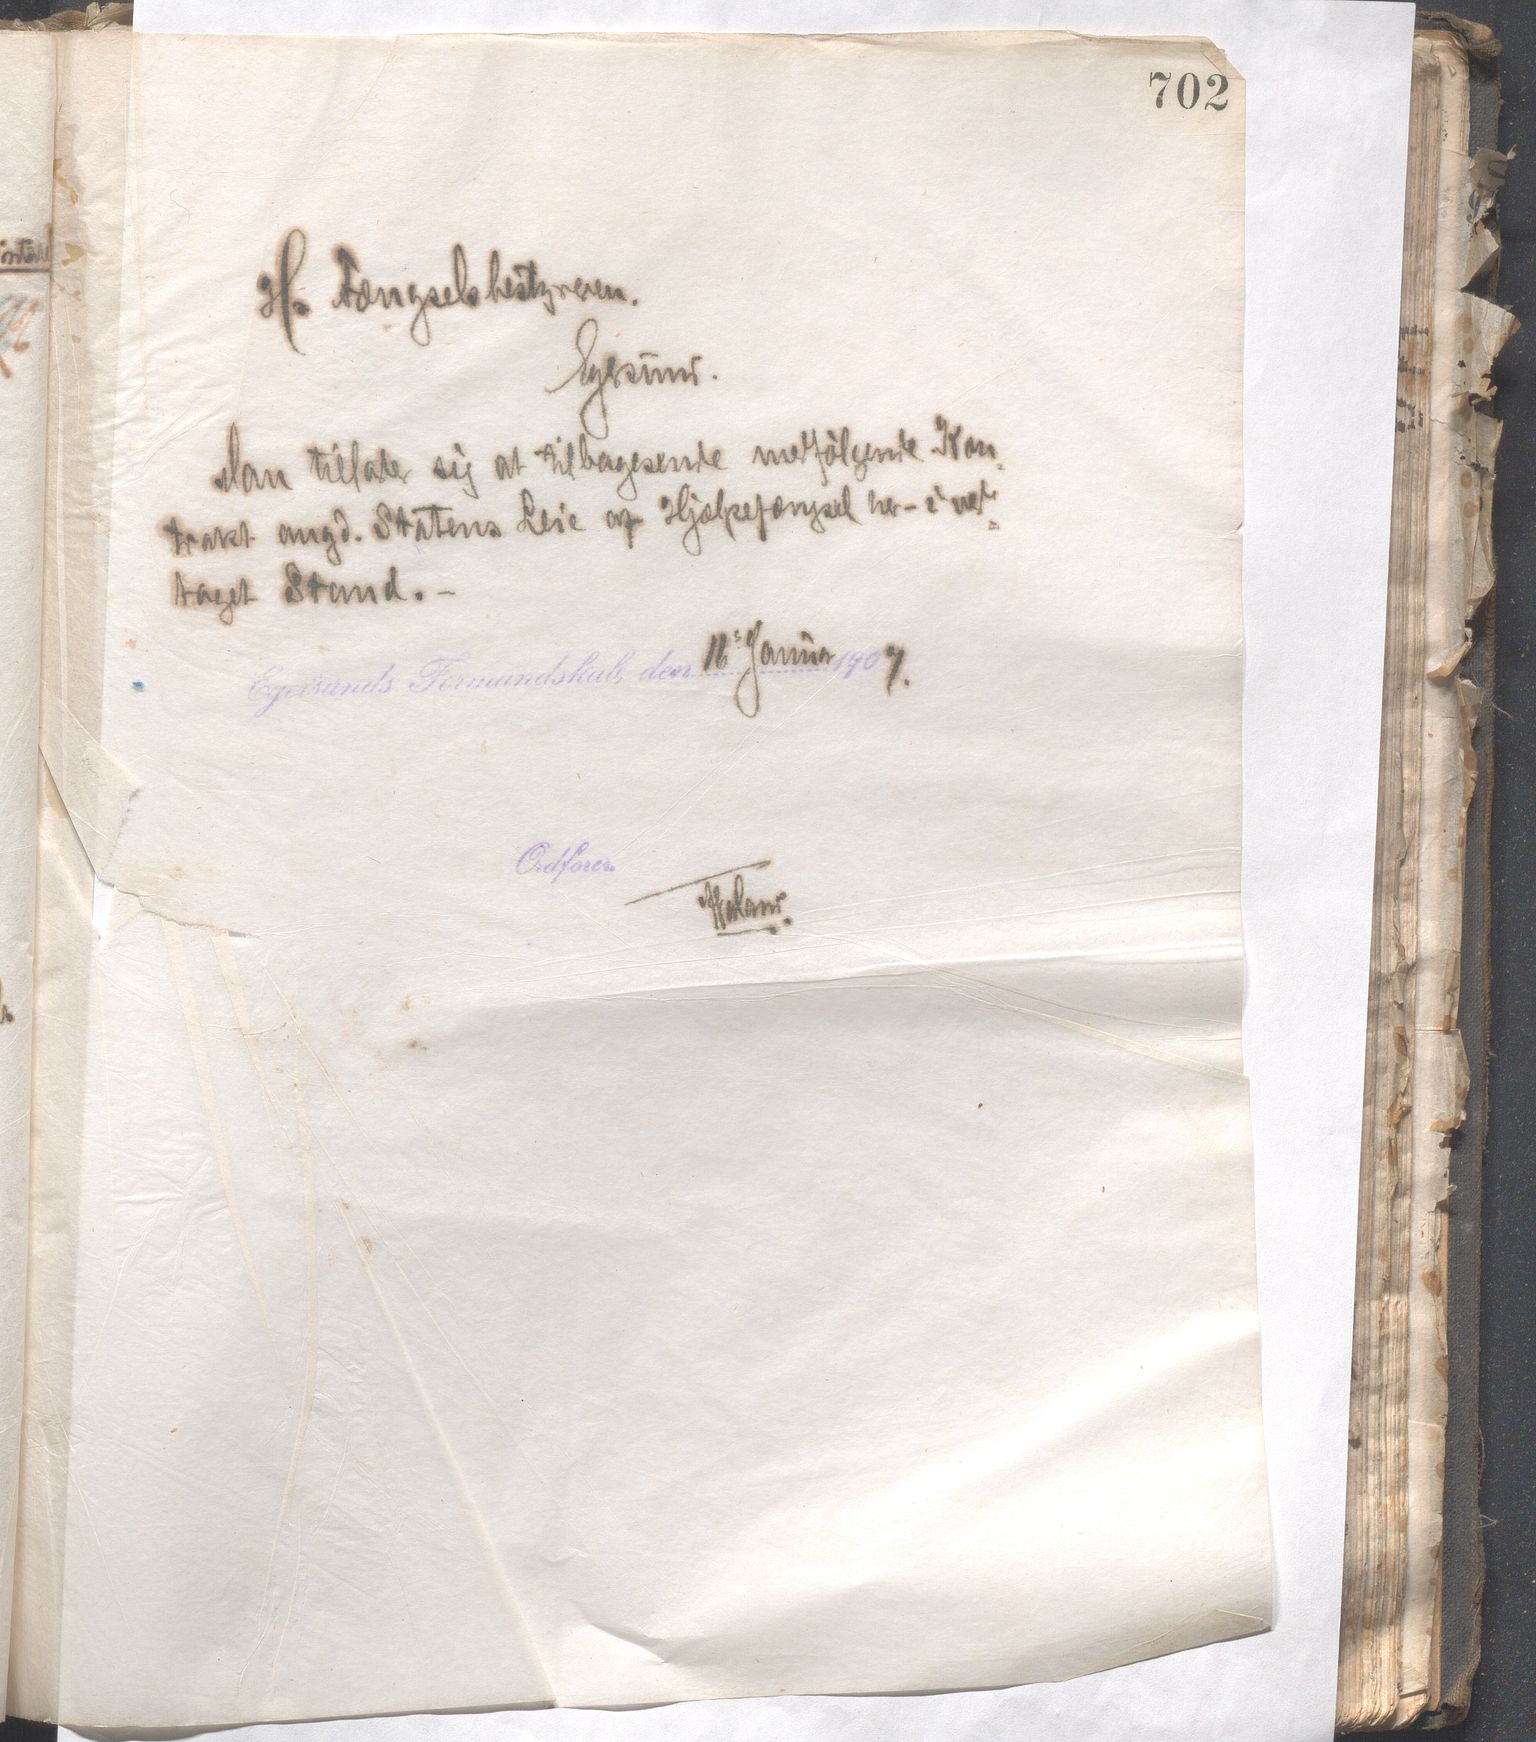 702
Hr. Fængselsbestyreren.
Egersund.
Man tillader sig at tilbagesende medfølgende Kon-
trakt angd. Statens Leie af Hjælpefængsel her - i ved-
taget Stand. -
Egersunds Formandskab, den 16' Januar 1907.
Ordfører.